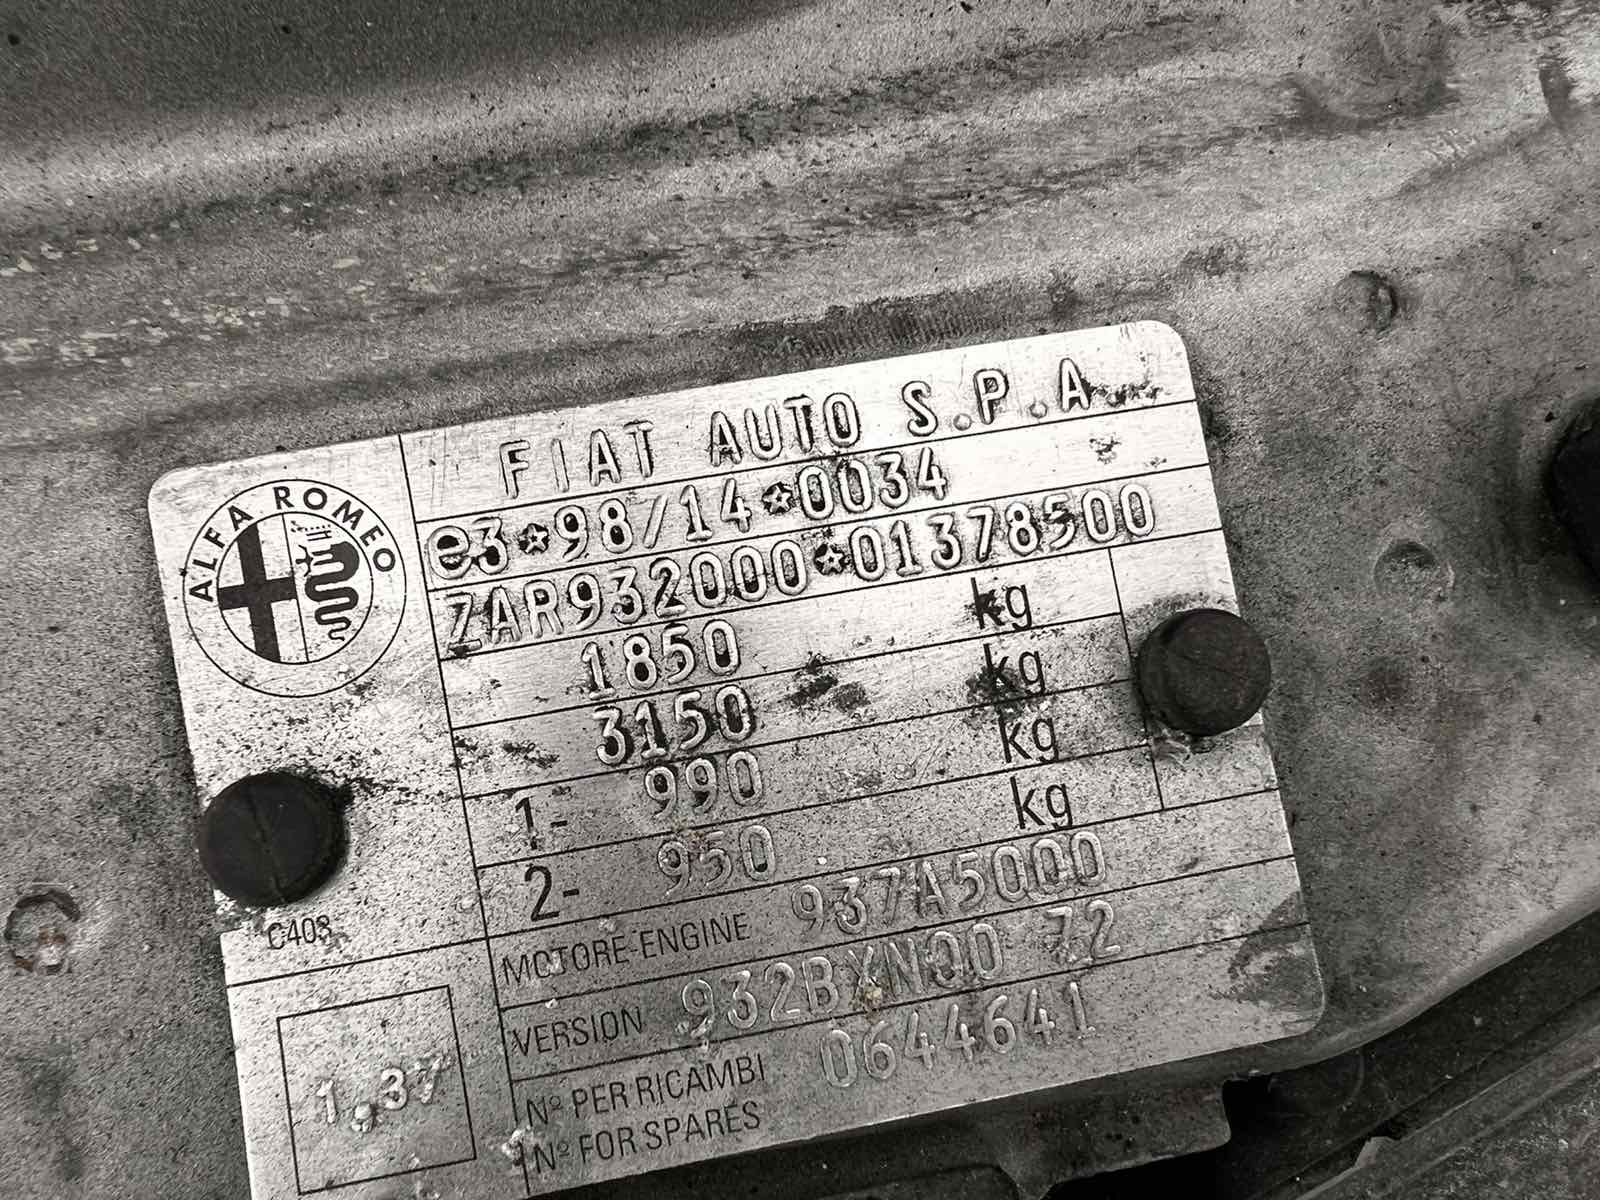 ALFA ROMEO
FIAT AUTO S.P.A.
e3*98/14*0034
ZAR932000*01378500
1850 kg
3150 kg
1- 990 kg
2- 950 kg
C403
MOTORE-ENGINE 937A5000
VERSION 932BXN00 72
Nº PER RICAMBI 0644641
Nº FOR SPARES
1,37